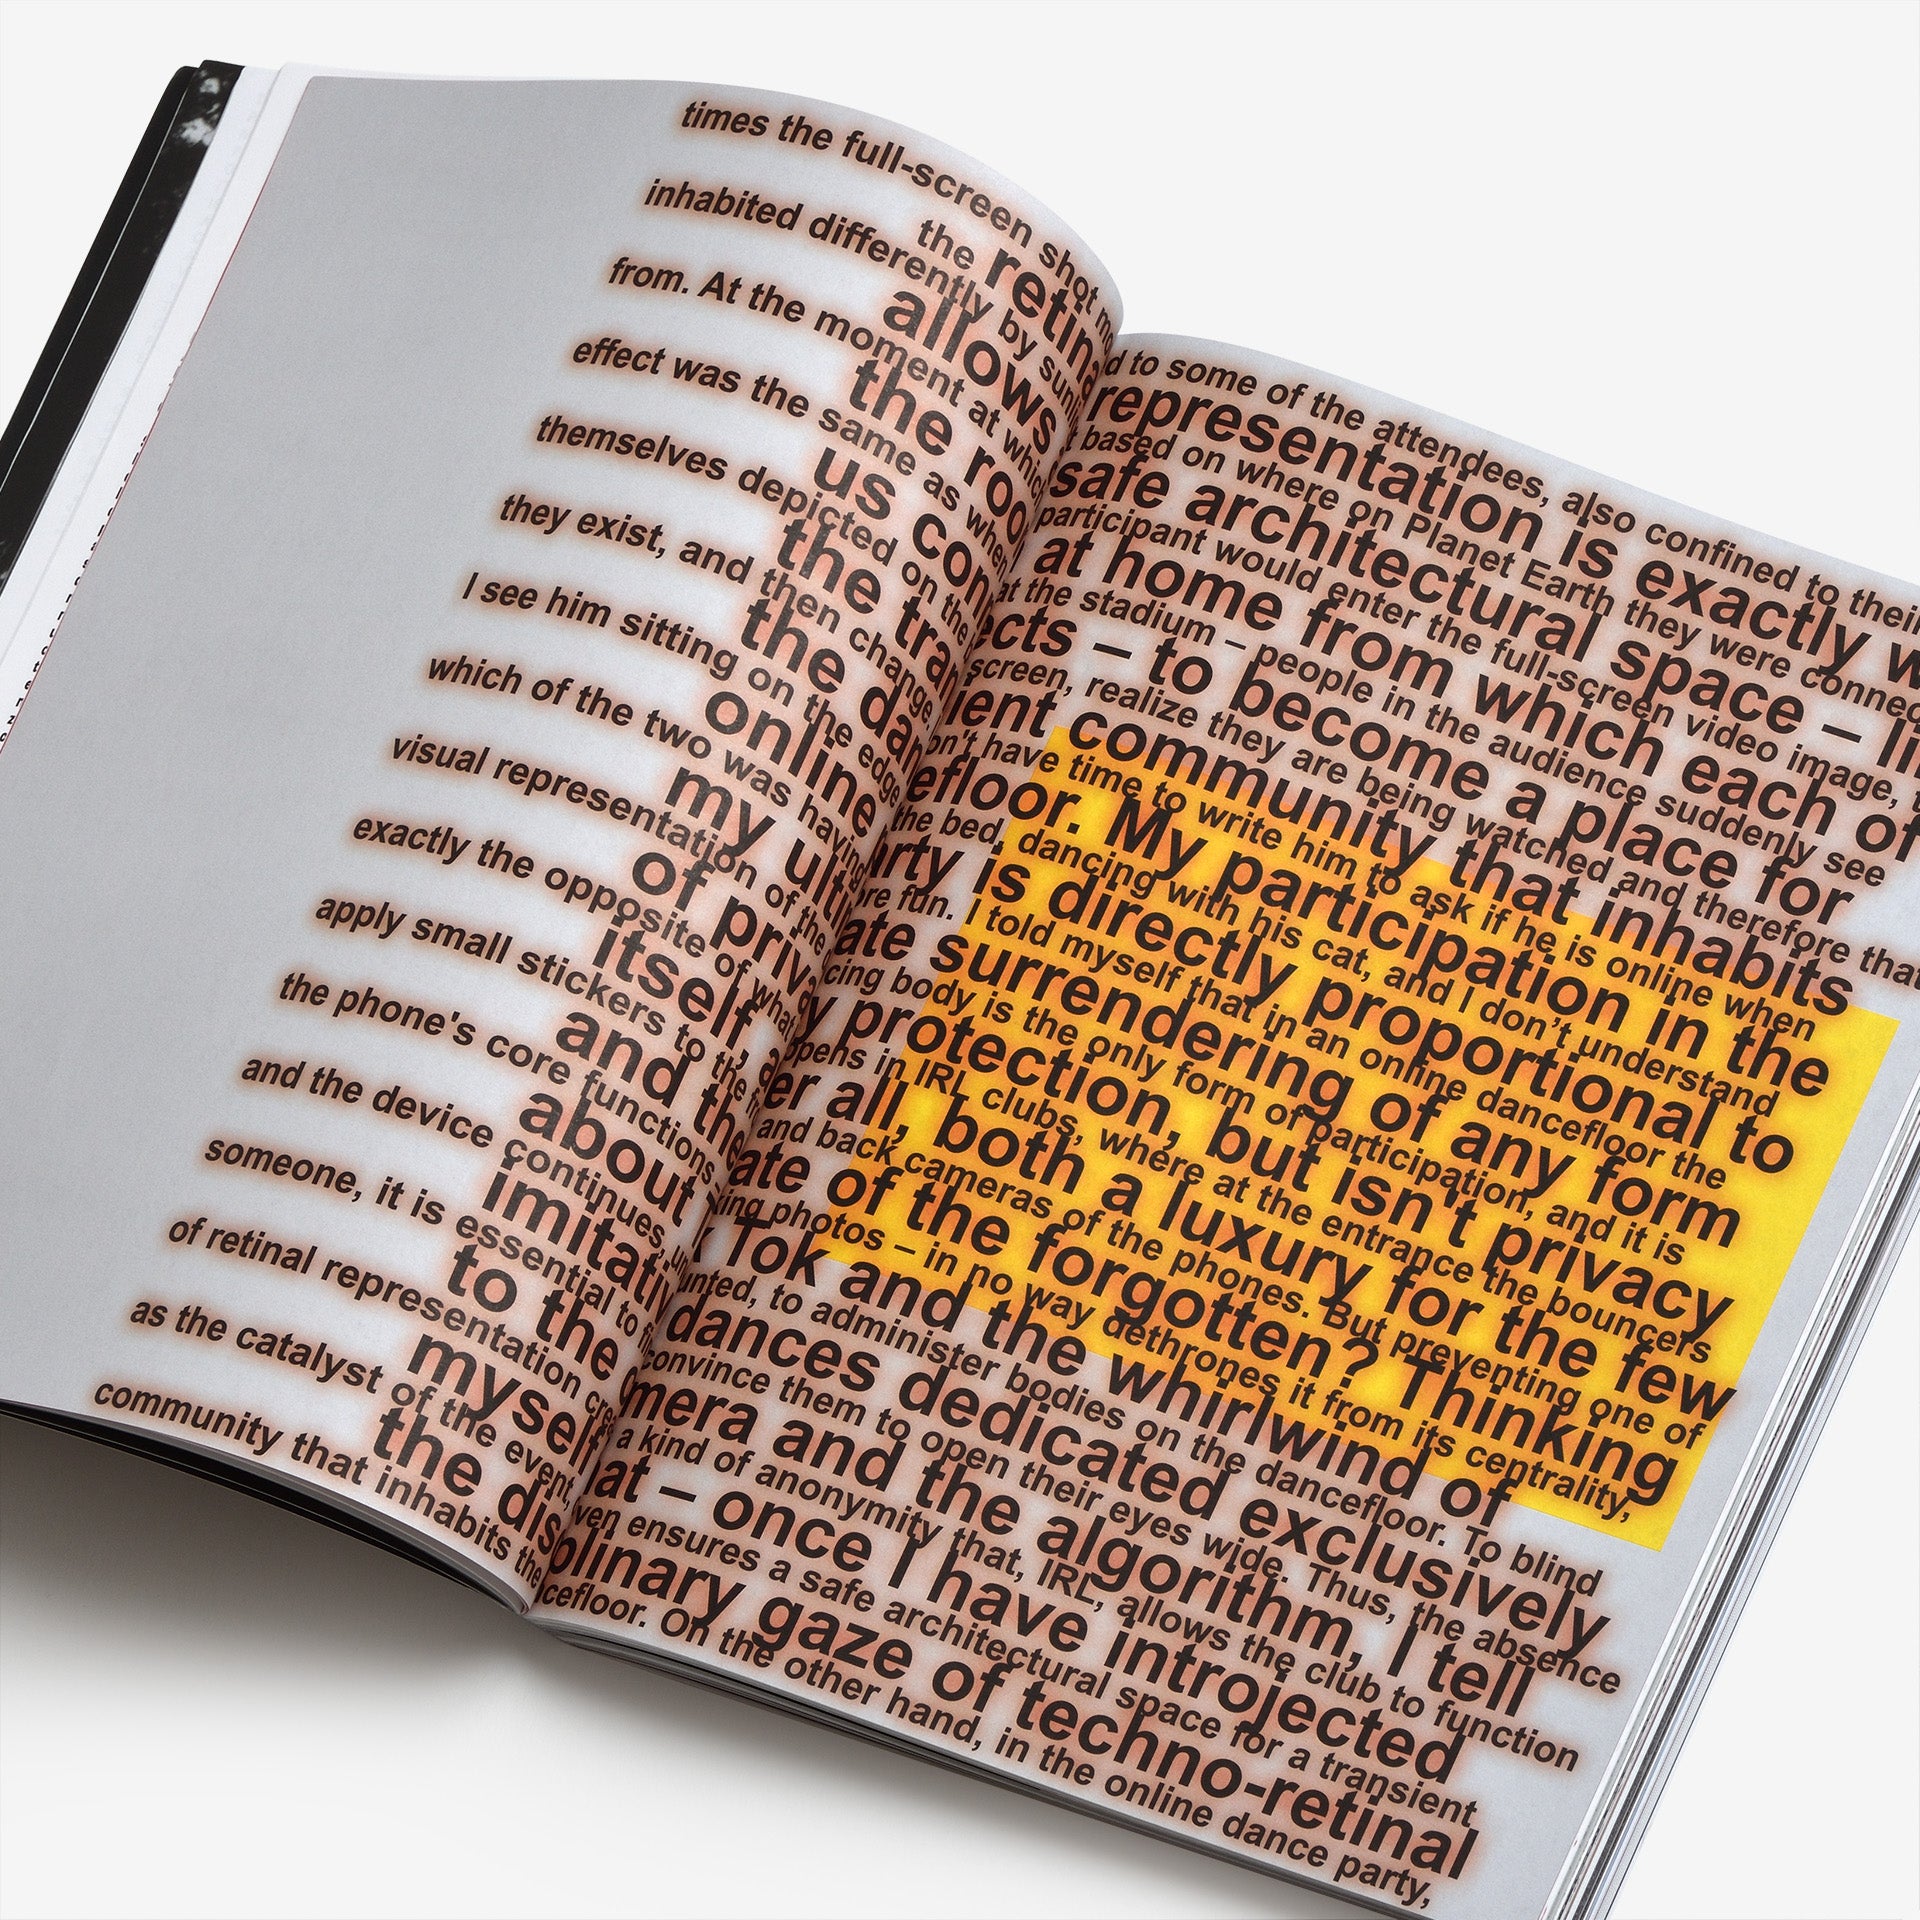 times the full-screen shot mo d to some of the attendees, also confined to their
the retina representation is exactly w
inhabited differently by sunli t based on where on Planet Earth they were connec
allows safe architectural space – li
from. At the moment at which participant would enter the full-screen video image, t
the roo at home from which each of
effect was the same as when at the stadium – people in the audience suddenly see
us con ects – to become a place for
themselves depicted on the screen, realize they are being watched and therefore that
the tran ient community that inhabits
they exist, and then change on't have time to write him to ask if he is online when
the dan efloor. My participation in the
I see him sitting on the edge the bed, dancing with his cat, and I don't understand
online arty is directly proportional to
which of the two was having ore fun. I told myself that in an online dancefloor the
my ulti ate surrendering of any form
visual representation of the cing body is the only form of participation, and it is
of priva y protection, but isn't privacy
exactly the opposite of what ppens in IRL clubs, where at the entrance the bouncers
itself, a er all, both a luxury for the few
apply small stickers to the fr and back cameras of the phones. But preventing one of
and the ate of the forgotten? Thinking
the phone's core functions king photos – in no way dethrones it from its centrality,
about k Tok and the whirlwind of
and the device continues, un unted, to administer bodies on the dancefloor. To blind
imitativ dances dedicated exclusively
someone, it is essential to fi convince them to open their eyes wide. Thus, the absence
to the c mera and the algorithm, I tell
of retinal representation cre a kind of anonymity that, IRL, allows the club to function
myself at – once I have introjected
as the catalyst of the event, ven ensures a safe architectural space for a transient
the dis plinary gaze of techno-retinal
community that inhabits the cefloor. On the other hand, in the online dance party,